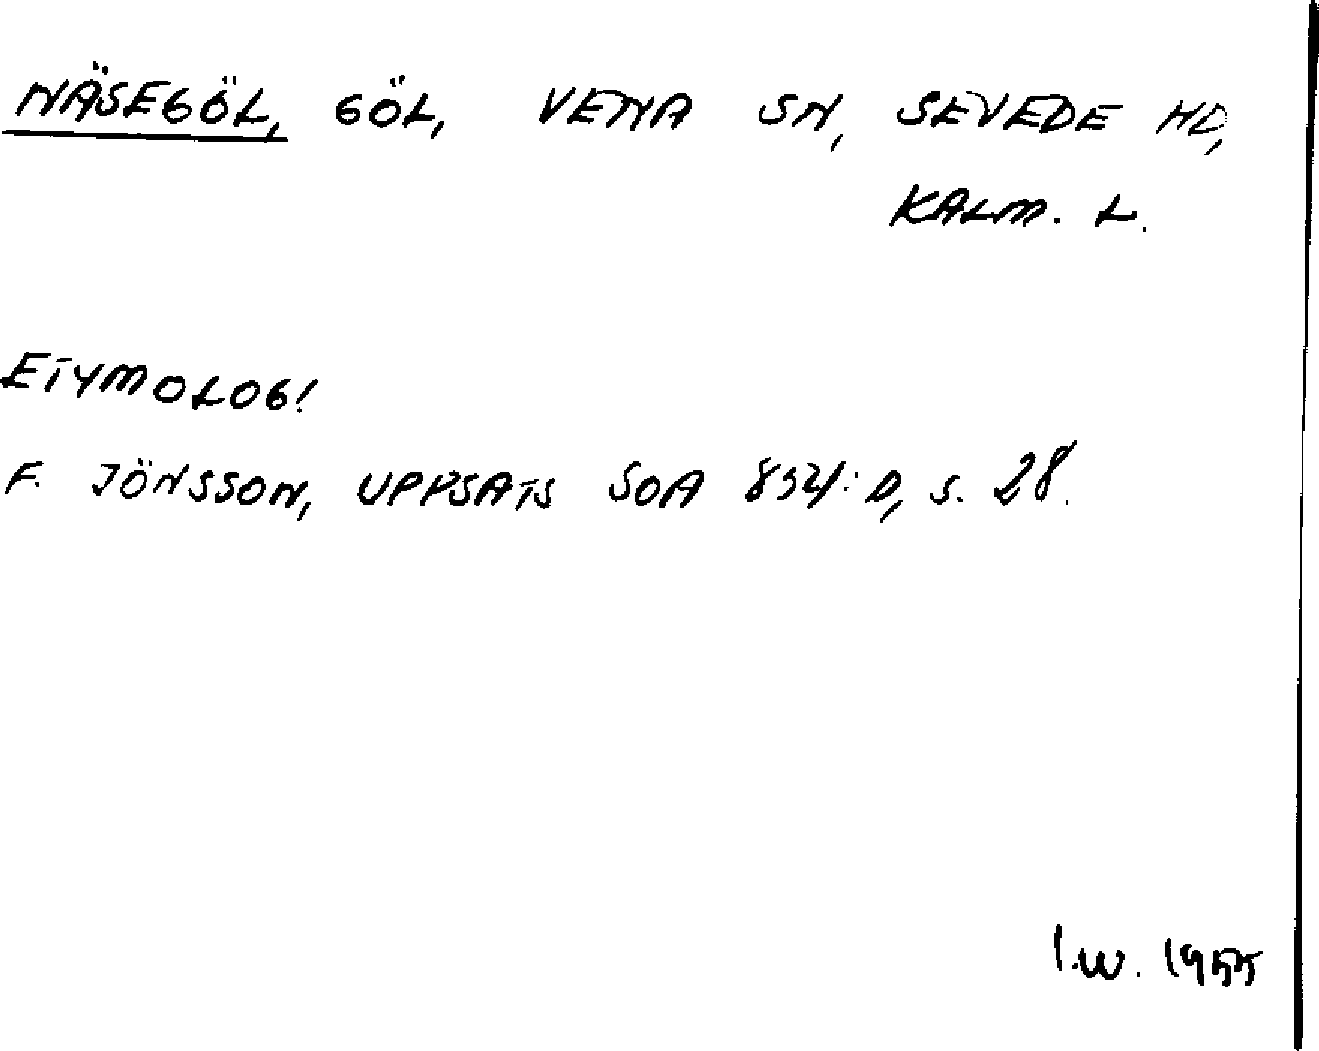 NÄSEGÖL, GÖL, VENA SN, SEVEDE HD,
KALM. L.
ETYMOLOGI
F. JÖNSSON, UPPSATS SOA 834:D, s. 28.
I.W. 1955